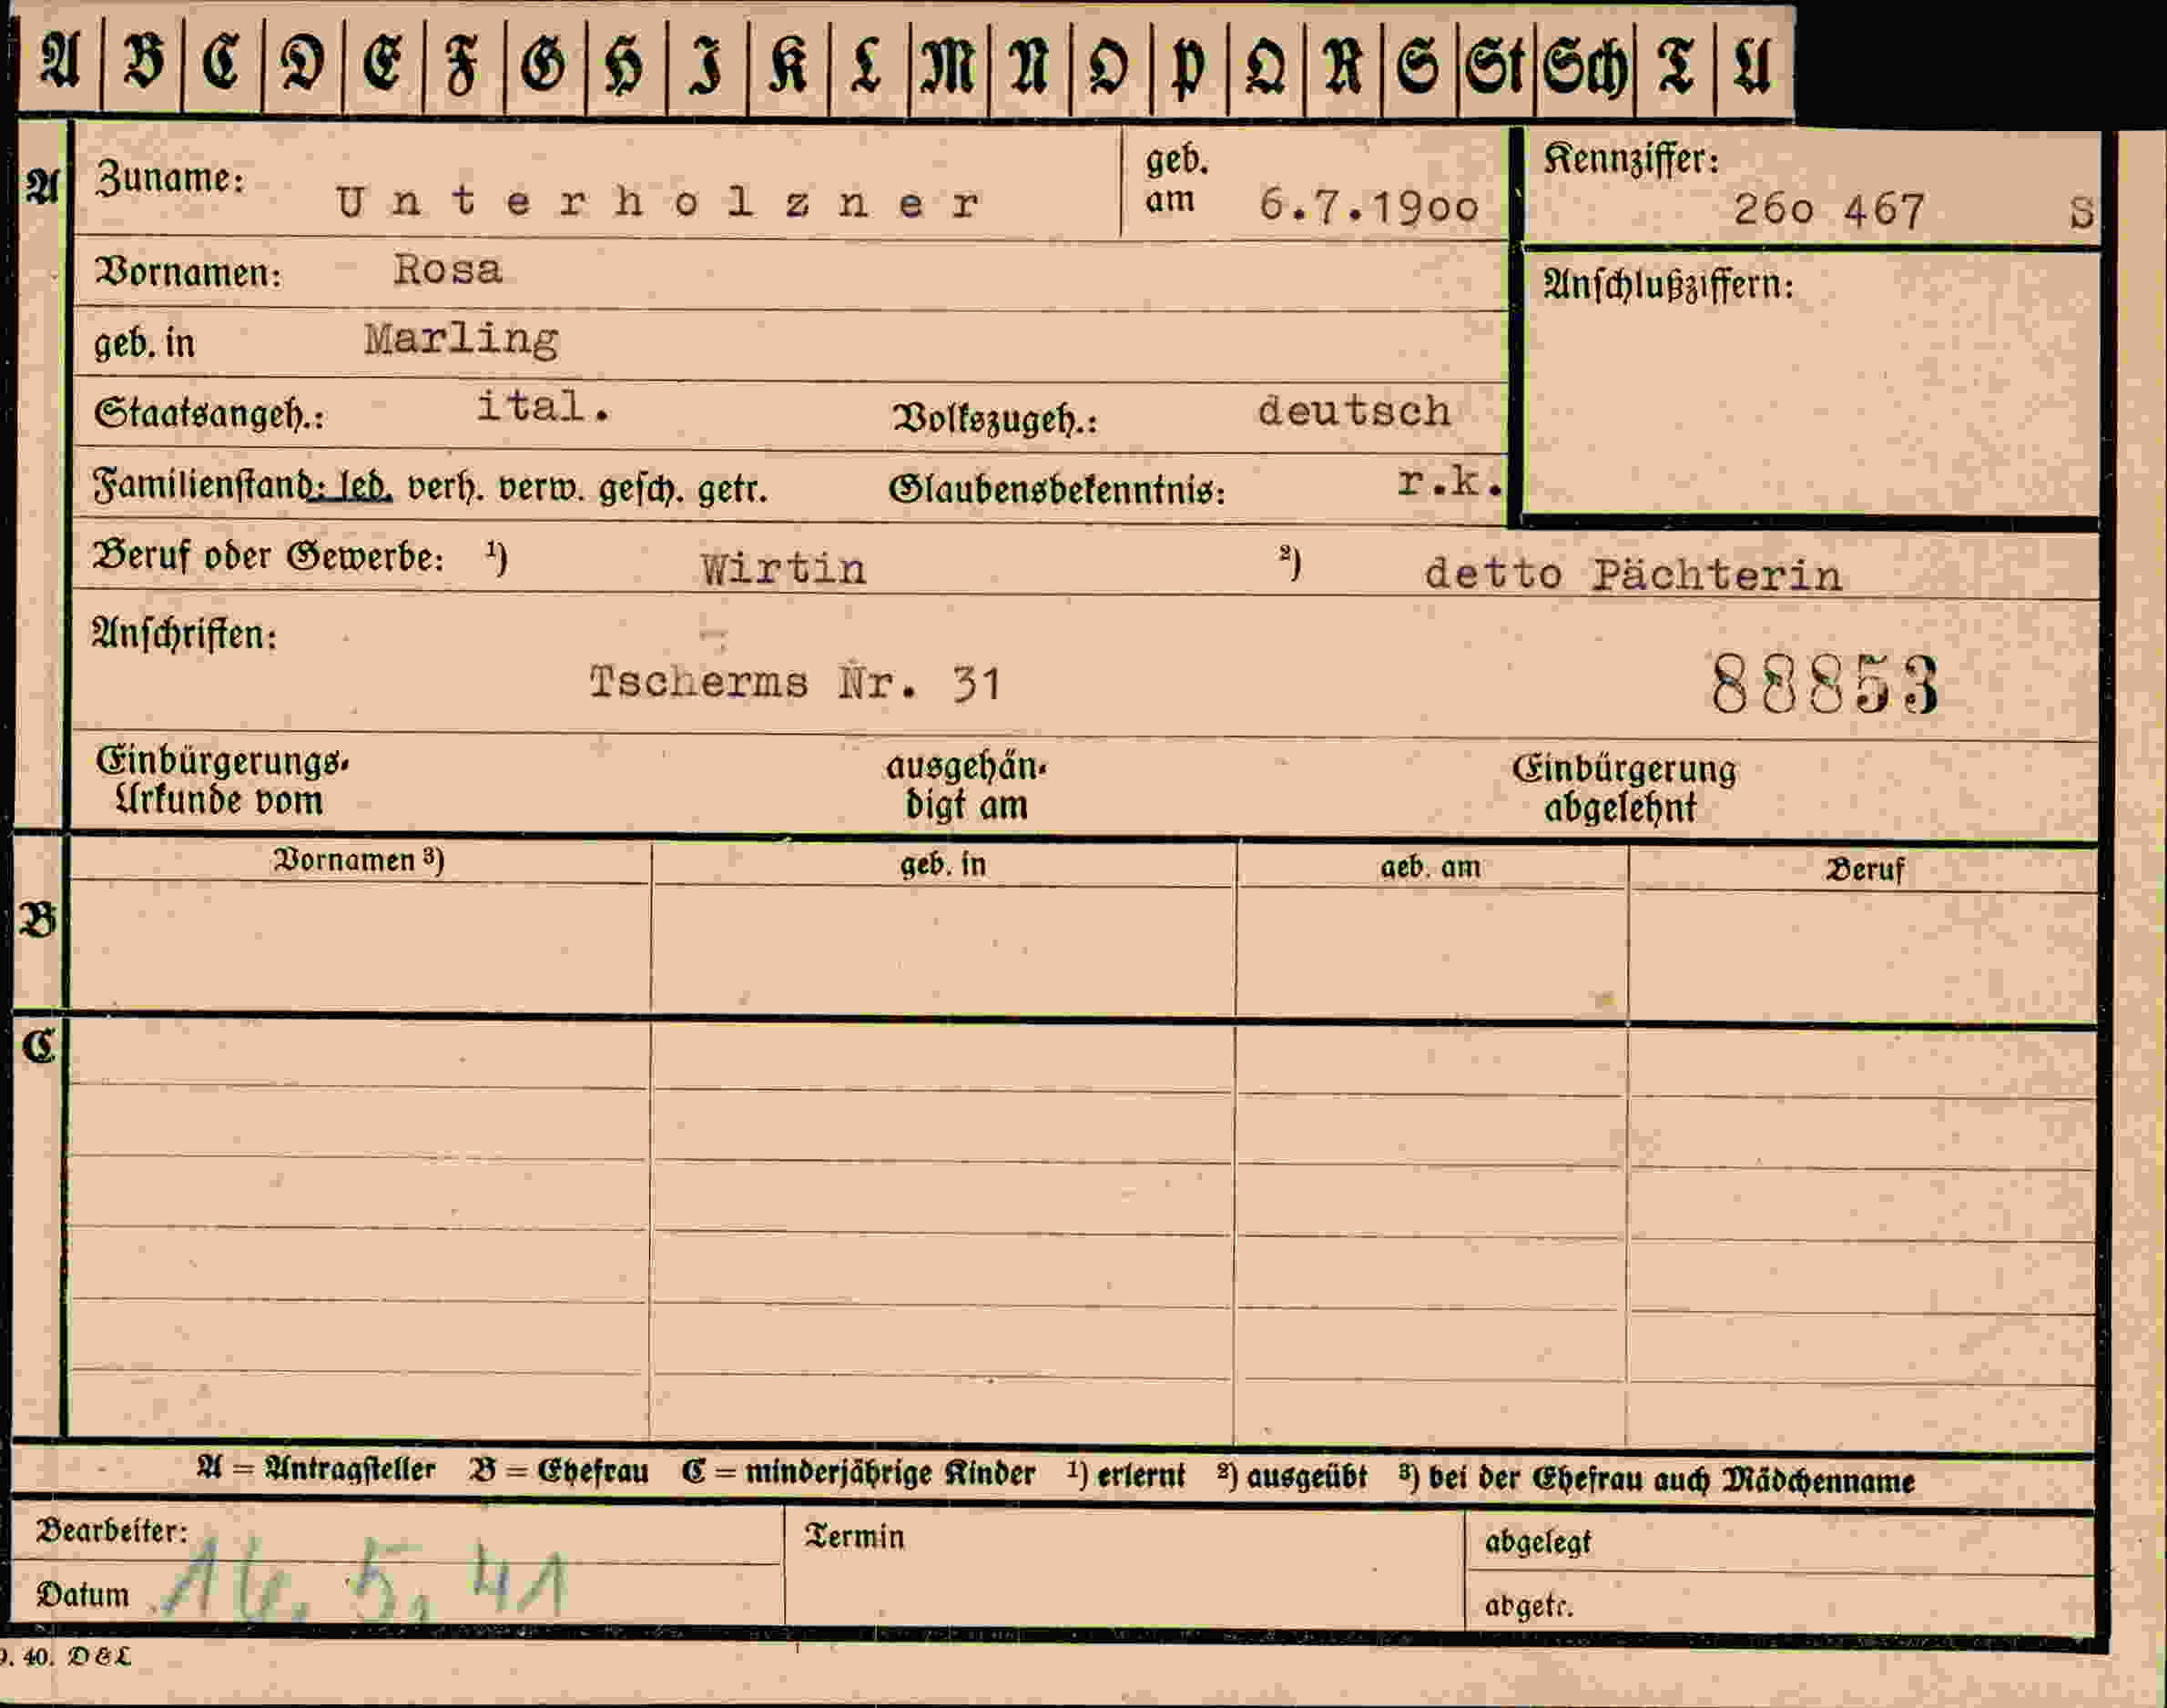 A B C D E F G H I K L M N O P Q R S St Sch T U
A Zuname: Unterholzner geb. am 6.7.1900 Kennziffer: 260 467 S
Vornamen: Rosa Anschlußziffern:
geb. in Marling
Staatsangeh.: ital. Volkszugeh.: deutsch
Familienstand: led. verh. verw. gesch. getr. Glaubensbekenntnis: r.k.
Beruf oder Gewerbe: ¹) Wirtin ²) detto Pächterin
Anschriften:
Tscherms Nr. 31 88853
Einbürgerungs- ausgehän- Einbürgerung
Urkunde vom digt am abgelehnt
Vornamen ³) geb. in geb. am Beruf
B
C
A = Antragsteller B = Ehefrau C = minderjährige Kinder ¹) erlernt ²) ausgeübt ³) bei der Ehefrau auch Mädchenname
Bearbeiter: Termin abgelegt
Datum 16. 5. 41 abgetr.
9. 40. D&L